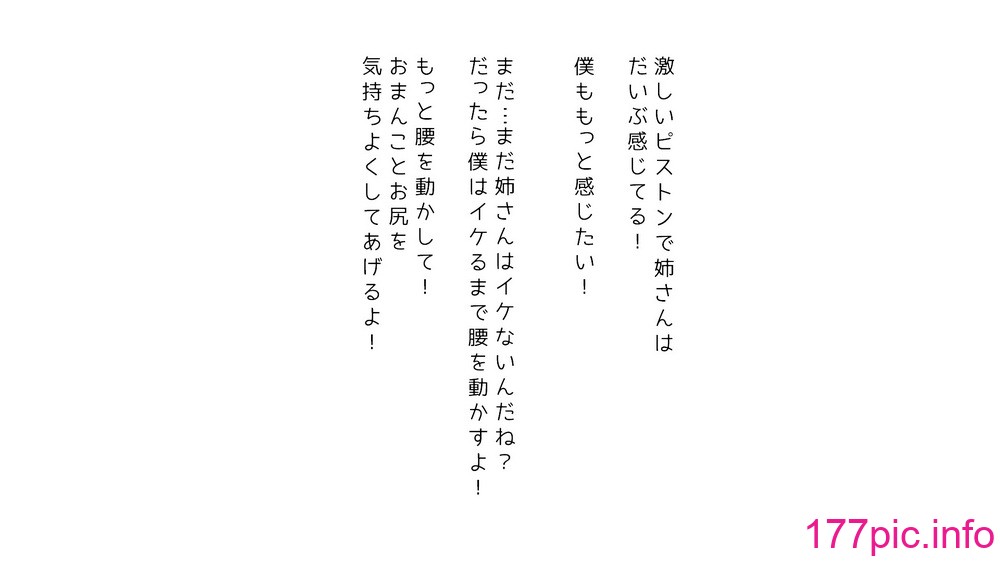 激しいピストンで姉さんは
だいぶ感じてる！
僕ももっと感じたい！
まだ…まだ姉さんはイケないんだね？
だったら僕はイケるまで腰を動かすよ！
もっと腰を動かして！
おまんことお尻を
気持ちよくしてあげるよ！
177pic.info